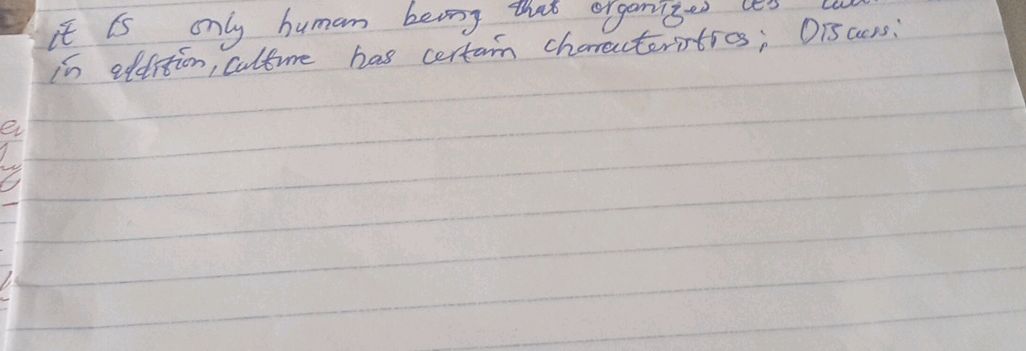 it is only human being that organizes its
in addition, culture has certain characteristics; Discuss: